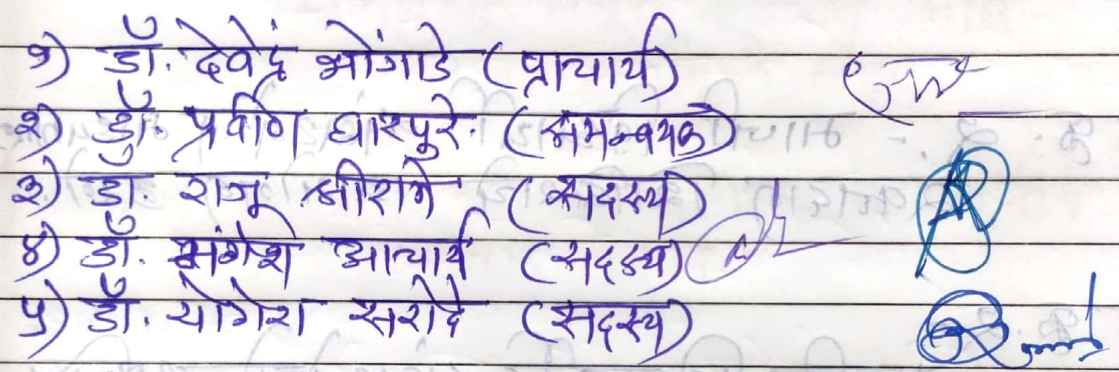 १) डॉ. देवेंद्र भोंगाडे (प्राचार्य)
२) डॉ. प्रवीण घारपुरे. (समन्वयक)
३) डॉ. राजू श्रीरामे (सदस्य)
४) डॉ. मंगेश आचार्य (सदस्य)
५) डॉ. योगेश सरोदे (सदस्य)